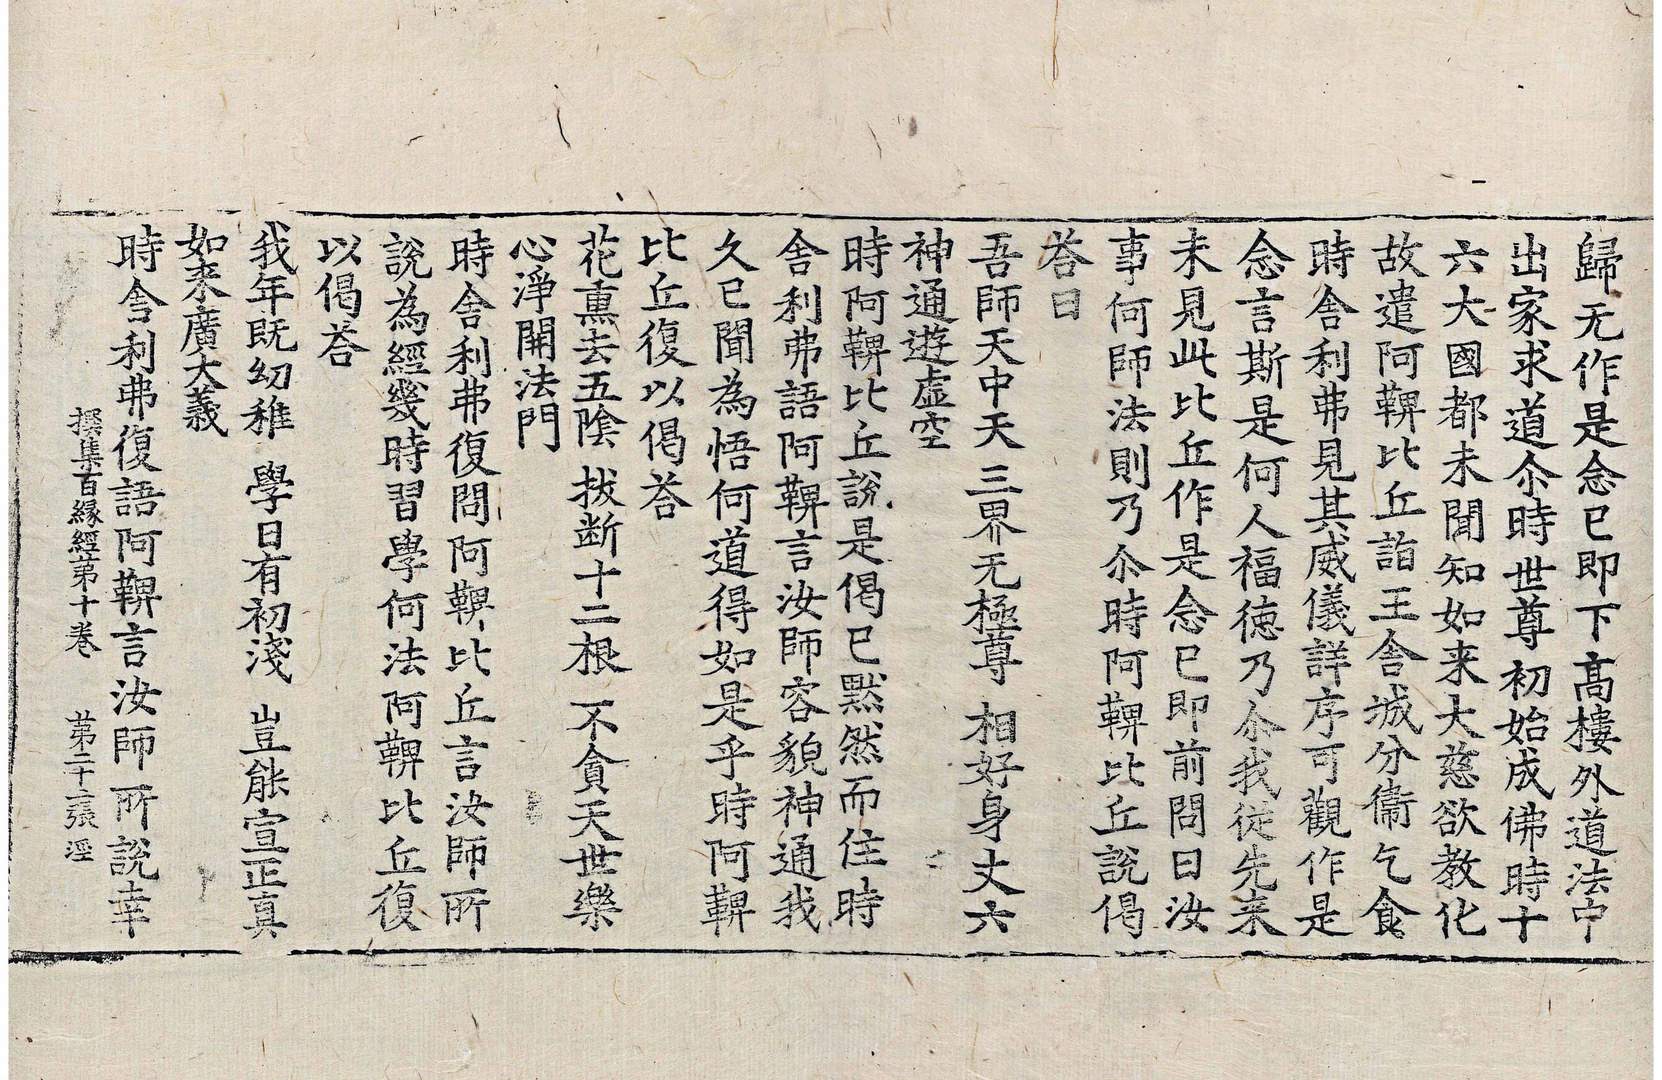 歸无作是念已即下高樓外道法中
出家求道尒時世尊初始成佛時十
六大國都未聞知如来大慈欲教化
故遣阿鞞比丘詣王舍城分衞乞食
時舍利弗見其威儀詳序可觀作是
念言斯是何人福徳乃尒我従先来
未見此比丘作是念已即前問曰汝
事何師法則乃尒時阿鞞比丘説偈
荅曰
吾師天中天 三界无極尊 相好身丈六
神通遊虛空
時阿鞞比丘說是偈已默然而住時
舍利弗語阿鞞言汝師容貌神通我
久已聞為悟何道得如是乎時阿鞞
比丘復以偈荅
花熏去五陰 拔断十二根 不貪天世樂
心淨開法門
時舍利弗復問阿鞞比丘言汝師所
說為經幾時習學何法阿鞞比丘復
以偈荅
我年既幼稚 學日有初淺 豈能宣正真
如来廣大義
撰集百縁經第十卷 第二十二張 涇
時舍利弗復語阿鞞言汝師所說幸